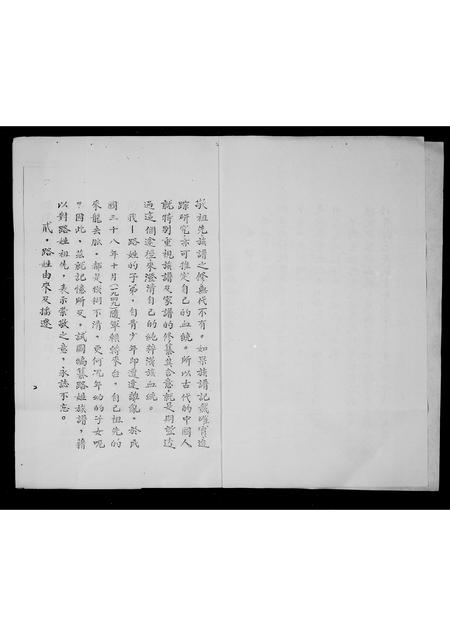 敬祖先族譜之修無代不有。如果族譜記載確實追
踪研究亦可推定自己的血統。所以古代的中國人
就特別重視族譜及家譜的修纂其含意就是期望透
過這個途徑來澄清自己的純粹漢族血統。
我—路姓的子弟，自青少年即遭逢離亂。於民
國三十八年十月(一九四九)隨軍輾轉來台。自己祖先的
來龍去脈，都是模糊不清。更何况年幼的子女呢
？因此，茲就記憶所及，試圖編纂路姓族譜，藉
以對路姓祖先，表示崇敬之意，永誌不忘。
貳・路姓由來及播遷